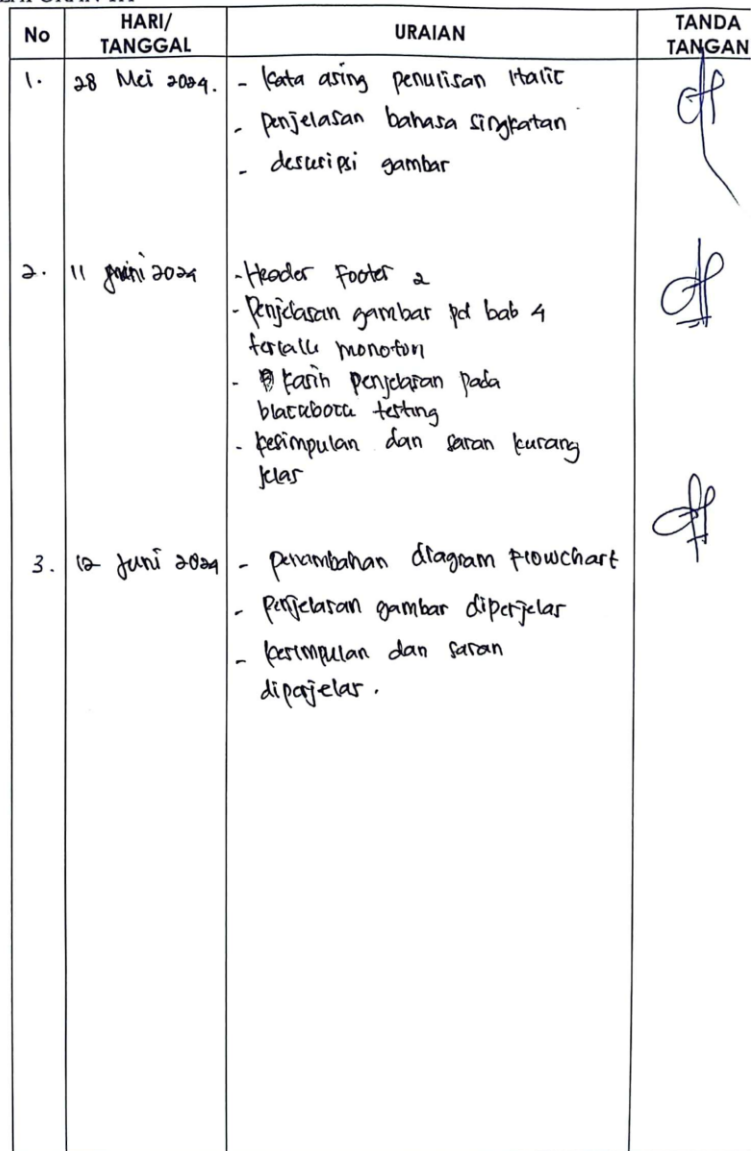 No
HARI/
TANGGAL
URAIAN
TANDA
TANGAN
1.
28 Mei 2024.
- Kata asing penulisan Italic
- penjelasan bahasa singkatan
- descripsi gambar
2.
11 Juni 2024
- Header Footer 2
- Penjelasan gambar pd bab 4
terlalu monoton
- Kasih penjelasan pada
blackbox testing
- kesimpulan dan saran kurang
jelas
3.
12 Juni 2024
- penambahan diagram flowchart
- penjelasan gambar diperjelas
- kesimpulan dan saran
diperjelas.